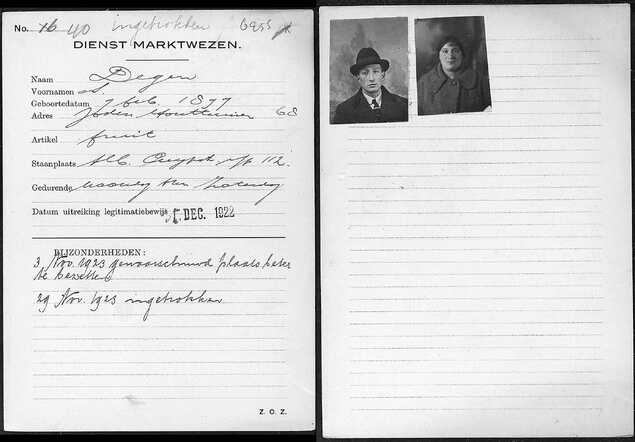 No. 16 40 ingetrokken
DIENST MARKTWEZEN.
Naam Degen
Voornamen S.
Geboortedatum 7 feb. 1877
Adres Joden Houttuinen 68
Artikel fruit
Staanplaats Alb. Cuypstr. 112.
Gedurende Maandag t/m Zaterdag
Datum uitreiking legitimatiebewijs DEC. 1922
BIJZONDERHEDEN:
3 Nov. 1923 gewaarschuwd plaats beter
te bezetten
29 Nov. 1923 ingetrokken
Z. O. Z.